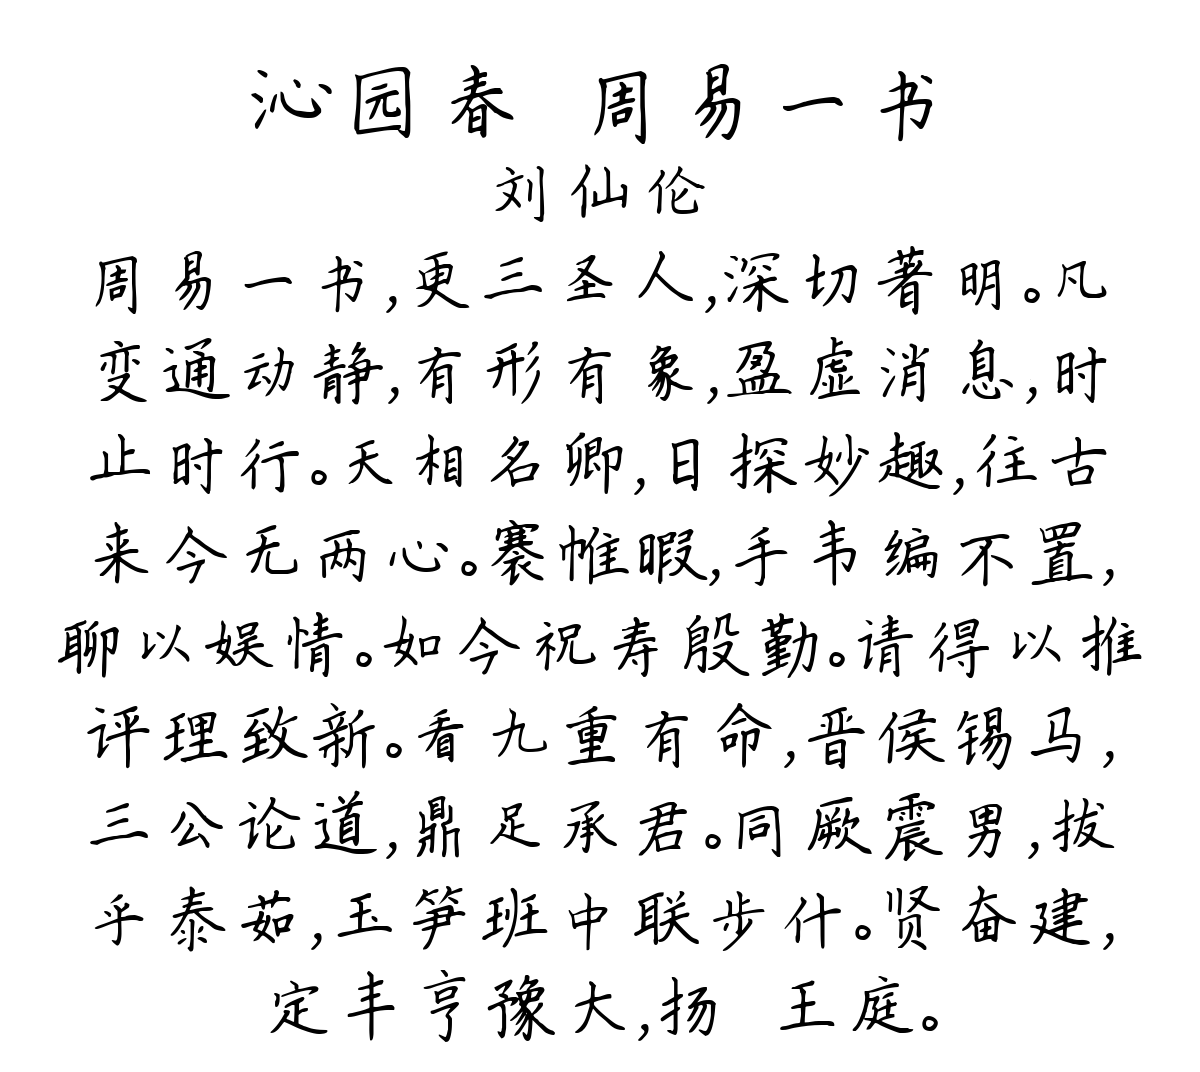 沁园春 周易一书
刘仙伦
周易一书,更三圣人,深切著明。凡
变通动静,有形有象,盈虚消息,时
止时行。天相名卿,日探妙趣,往古
来今无两心。褰帷暇,手韦编不置,
聊以娱情。如今祝寿殷勤。请得以推
评理致新。看九重有命,晋侯锡马,
三公论道,鼎足承君。同厥震男,拔
乎泰茹,玉笋班中联步什。贤奋建,
定丰亨豫大,扬 王庭。